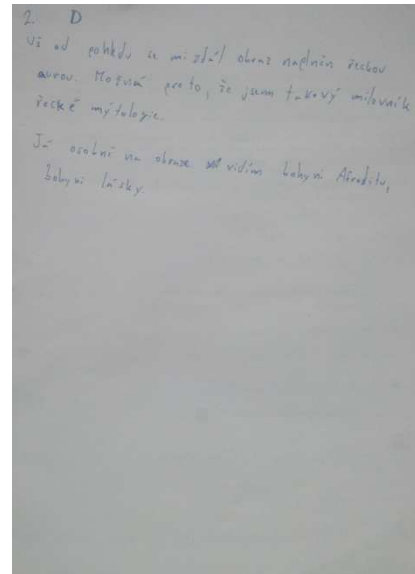 2. D
Už od pohledu se mi zdál obraz naplněn řeckou
aurou. Možná proto, že jsem takový milovník
řecké mýtologie.
Já osobně na obraze vidím bohyni Afroditu,
bohyni lásky.